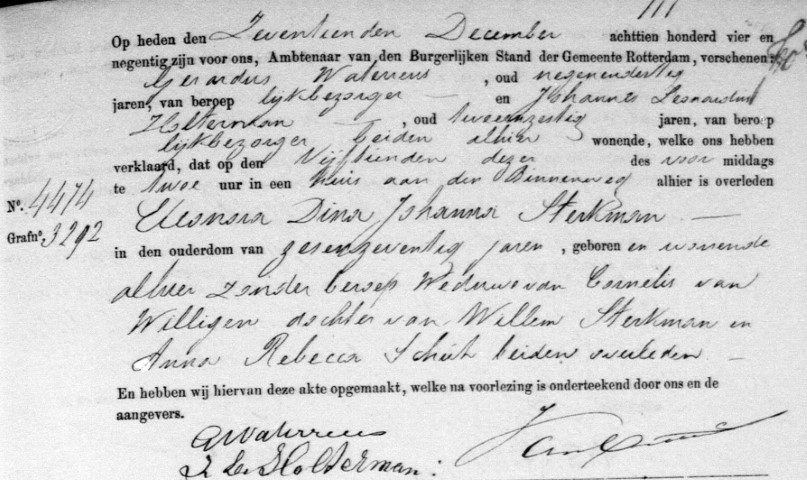 Op heden den Zeventienden December achttien honderd vier en
negentig zijn voor ons, Ambtenaar van den Burgerlijken Stand der Gemeente Rotterdam, verschenen:
Gerardus Waterreus , oud negenendertig
jaren, van beroep lijkbezorger — en Johannes Leonardus
Holterman — , oud tweeenzestig jaren, van beroep
lijkbezorger beiden alhier wonende, welke ons hebben
verklaard, dat op den Vijftienden dezer des voor middags
te twee uur in een huis aan den Binnenweg alhier is overleden
No. 4474
Eleonora Dina Johanna Sterkman —
Grafno. 3292
in den ouderdom van zesenzeventig jaren , geboren en wonende
alhier zonder beroep Weduwe van Cornelis van
Willigen dochter van Willem Sterkman en
Anna Rebecca Schut beiden overleden —
En hebben wij hiervan deze akte opgemaakt, welke na voorlezing is onderteekend door ons en de
aangevers.
GWaterreus
J. L. Holterman: